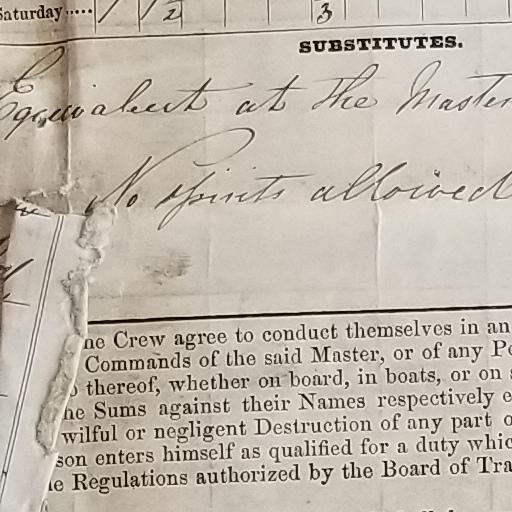 Saturday ..... 1 1/2 3
SUBSTITUTES.
Equivalent at the Master
No Spirits allowed
he Crew agree to conduct themselves in an
Commands of the said Master, or of any Pe
thereof, whether on board, in boats, or on s
he Sums against their Names respectively e
wilful or negligent Destruction of any part o
son enters himself as qualified for a duty whic
e Regulations authorized by the Board of Tra